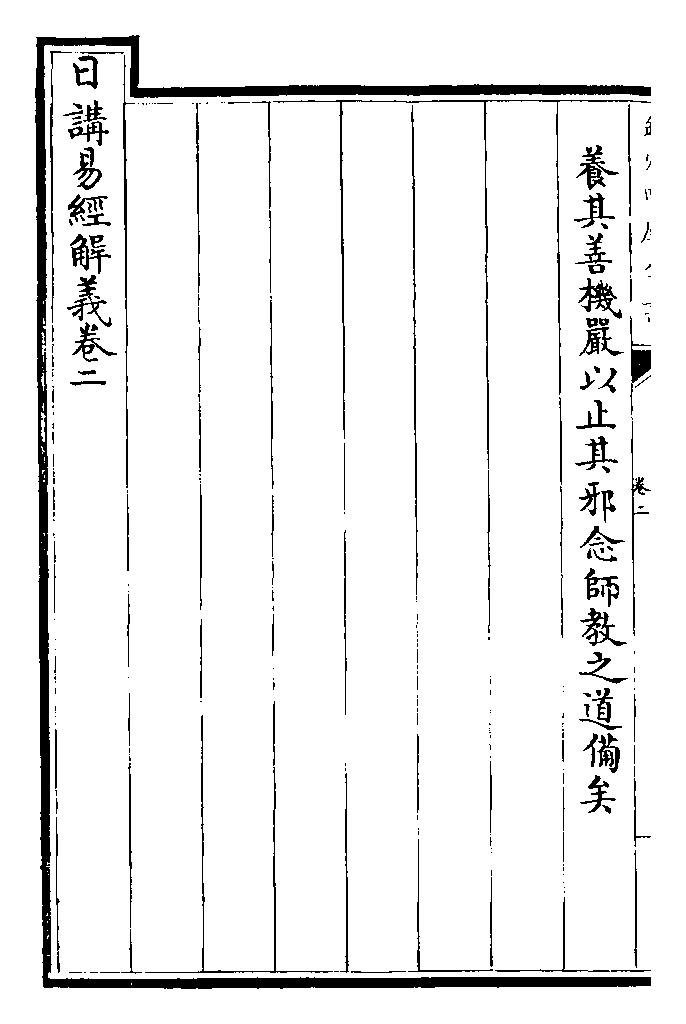 養其善機嚴以止其邪念師教之道備矣
日講易經解義卷二
卷二